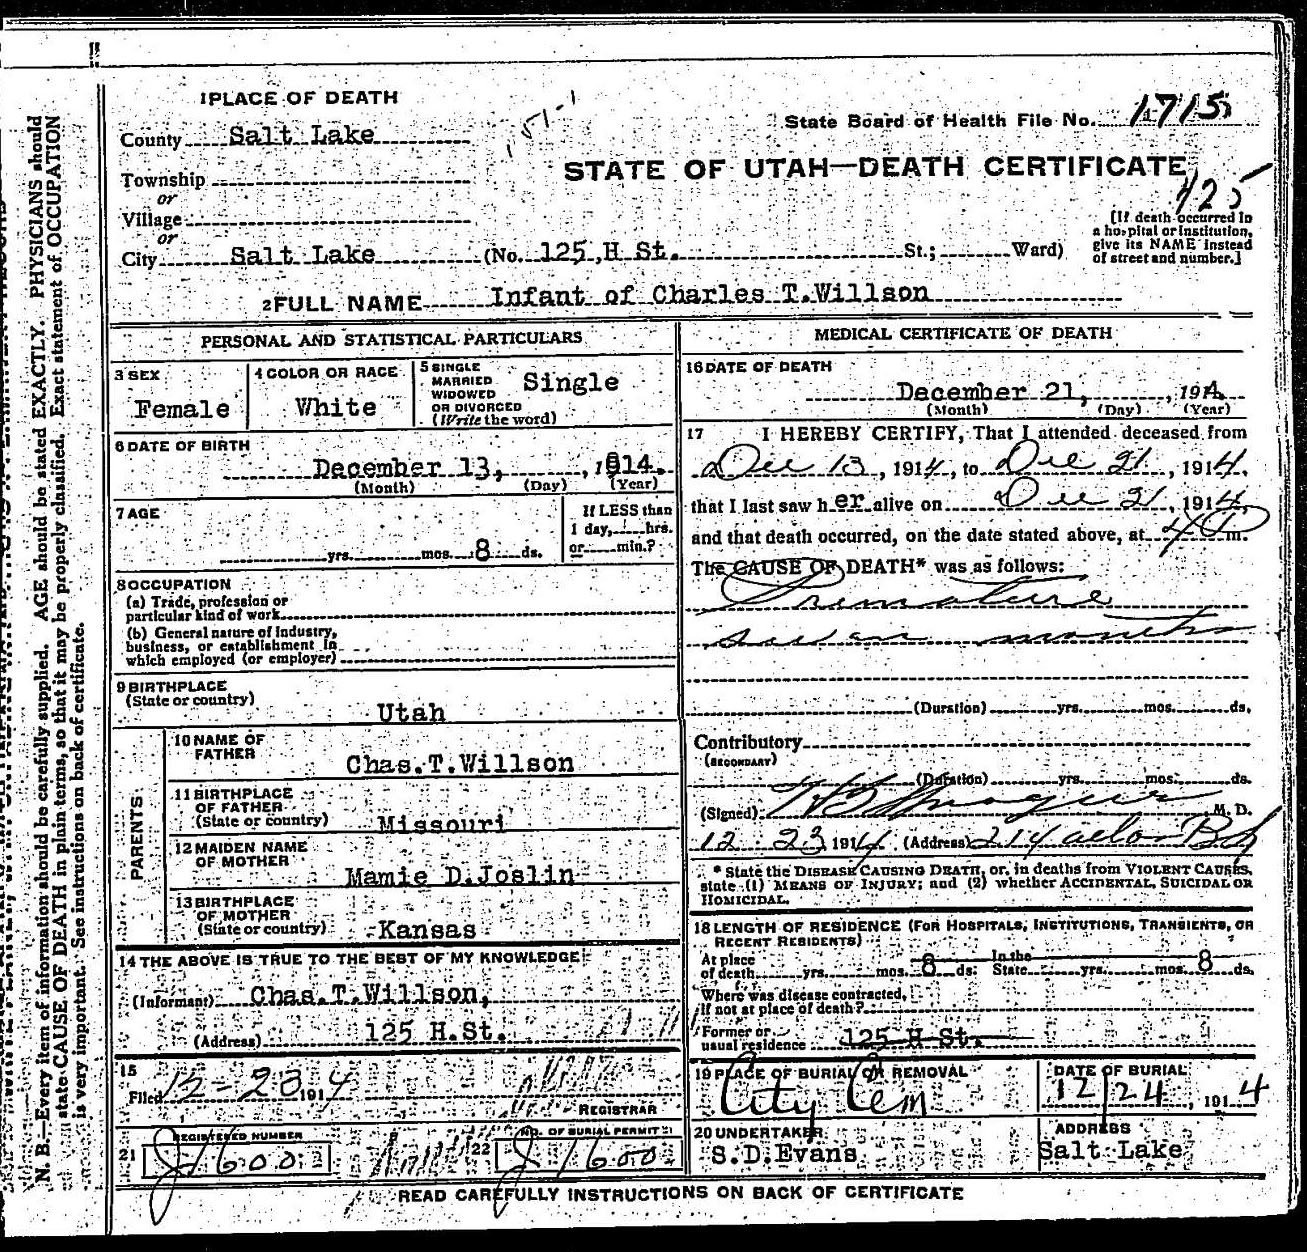 1 PLACE OF DEATH
State Board of Health File No. 1715
County Salt Lake
151-1
STATE OF UTAH—DEATH CERTIFICATE
Township
425
or
Village
or
City Salt Lake (No. 125, H St. St.; Ward)
[If death occurred in
a hospital or institution,
give its NAME instead
of street and number.]
2 FULL NAME Infant of Charles T.Willson
PERSONAL AND STATISTICAL PARTICULARS
3 SEX
Female
4 COLOR OR RACE
White
5 SINGLE
MARRIED
WIDOWED
OR DIVORCED
(Write the word)
Single
6 DATE OF BIRTH
December 13, , 1914.
(Month) (Day) (Year)
7 AGE
If LESS than
1 day, hrs.
or min.?
yrs. mos. 8 ds.
8 OCCUPATION
(a) Trade, profession or
particular kind of work
(b) General nature of industry,
business, or establishment in
which employed (or employer)
9 BIRTHPLACE
(State or country)
Utah
PARENTS
10 NAME OF
FATHER
Chas.T.Willson
11 BIRTHPLACE
OF FATHER
(State or country)
Missouri
12 MAIDEN NAME
OF MOTHER
Mamie D.Joslin
13 BIRTHPLACE
OF MOTHER
(State or country)
Kansas
14 THE ABOVE IS TRUE TO THE BEST OF MY KNOWLEDGE
(Informant) Chas.T.Willson,
(Address) 125 H.St.
15
Filed 12-23 1914
REGISTRAR
REGISTERED NUMBER
21 J1600
NO. OF BURIAL PERMIT
22 J1600
MEDICAL CERTIFICATE OF DEATH
16 DATE OF DEATH
December 21, , 1914.
(Month) (Day) (Year)
17 I HEREBY CERTIFY, That I attended deceased from
Dec 13, 1914, to Dec 21, 1914,
that I last saw her alive on Dec 21, 1914,
and that death occurred, on the date stated above, at 4 P m.
The CAUSE OF DEATH* was as follows:
Premature
seven months
(Duration) yrs. mos. ds.
Contributory
(SECONDARY)
(Duration) yrs. mos. ds.
(Signed) M. D.
12 23 1914 (Address) 214
* State the DISEASE CAUSING DEATH, or, in deaths from VIOLENT CAUSES,
state (1) MEANS OF INJURY; and (2) whether ACCIDENTAL, SUICIDAL OR
HOMICIDAL.
18 LENGTH OF RESIDENCE (FOR HOSPITALS, INSTITUTIONS, TRANSIENTS, OR
RECENT RESIDENTS)
At place
of death yrs. mos. 8 ds. In the
State yrs. mos. 8 ds.
Where was disease contracted,
if not at place of death?
Former or
usual residence 125 H St.
19 PLACE OF BURIAL OR REMOVAL
City Cem
DATE OF BURIAL
12/24, 1914
20 UNDERTAKER
S.D.Evans
ADDRESS
Salt Lake
READ CAREFULLY INSTRUCTIONS ON BACK OF CERTIFICATE
N. B.—Every item of information should be carefully supplied. AGE should be stated EXACTLY. PHYSICIANS should
state CAUSE OF DEATH in plain terms, so that it may be properly classified. Exact statement of OCCUPATION
is very important. See instructions on back of certificate.